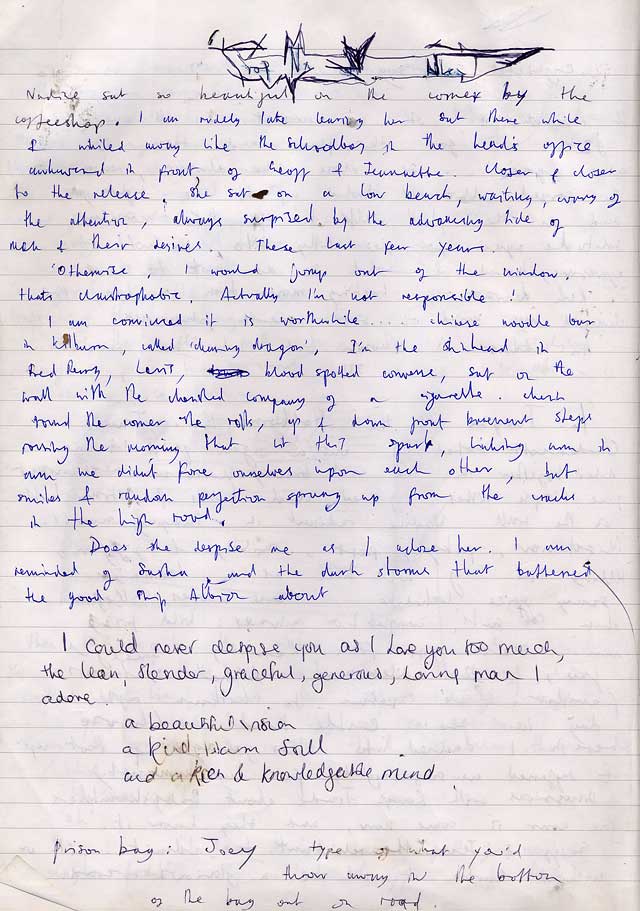 Nadine sat so beautiful on the corner by the
coffeeshop. I am rudely late leaving her sat there while
I whiled away like the schoolboy in the head's office
awkward in front of Geoff & Jeannette. Closer & closer
to the release, she sat on a low bench, waiting, wary of
the attention, always surprised by the advancing tide of
men & their desires. These last few years.
'Otherwise, I would jump out of the window.
thats claustrophobic. Actually I'm not responsible!
I am convinced it is worthwhile.... chinese noodle bar
in Kilburn, called 'dragon', I'm the skinhead in
Fred Perry, Levis, blood spotted converse, sat on the
wall with the cherished company of a cigarette.
round the corner she rolls, up & down front basement steps
the morning that lit this spark, linking arm in
arm we didnt force ourselves upon each other, but
smiles & random perfection sprung up from the cracks
in the high road.
Does she despise me as I adore her. I am
reminded of Sasha, and the dark storms that battered
the good ship Albion about
I could never despise you as I love you too much,
the lean, slender, graceful, generous, loving man I
adore.
a beautiful vision
a kind warm soul
and a keen & knowledgable mind
prison bag: Joey type of what you'd
throw away in the bottom
of the bag out on road.